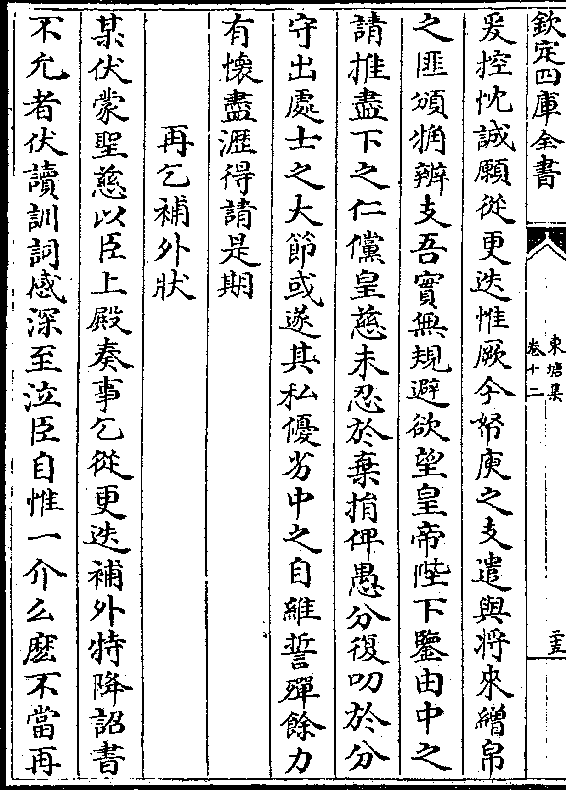 欽定四庫全書
東塘集
卷十二
爰控忱誠願從更迭惟厥今帑庾之支遣與將來繒帛
之匪頒觕辦支吾實無規避欲望皇帝陛下鑒由中之
請推盡下之仁儻皇慈未忍於棄捐俾愚分復叨於分
守出處士之大節或遂其私優劣中之自維誓殫餘力
有懷盡瀝得請是期
再乞補外狀
某伏蒙聖慈以臣上殿奏事乞從更迭補外特降詔書
不允者伏讀訓詞感深至泣臣自惟一介么麽不當再